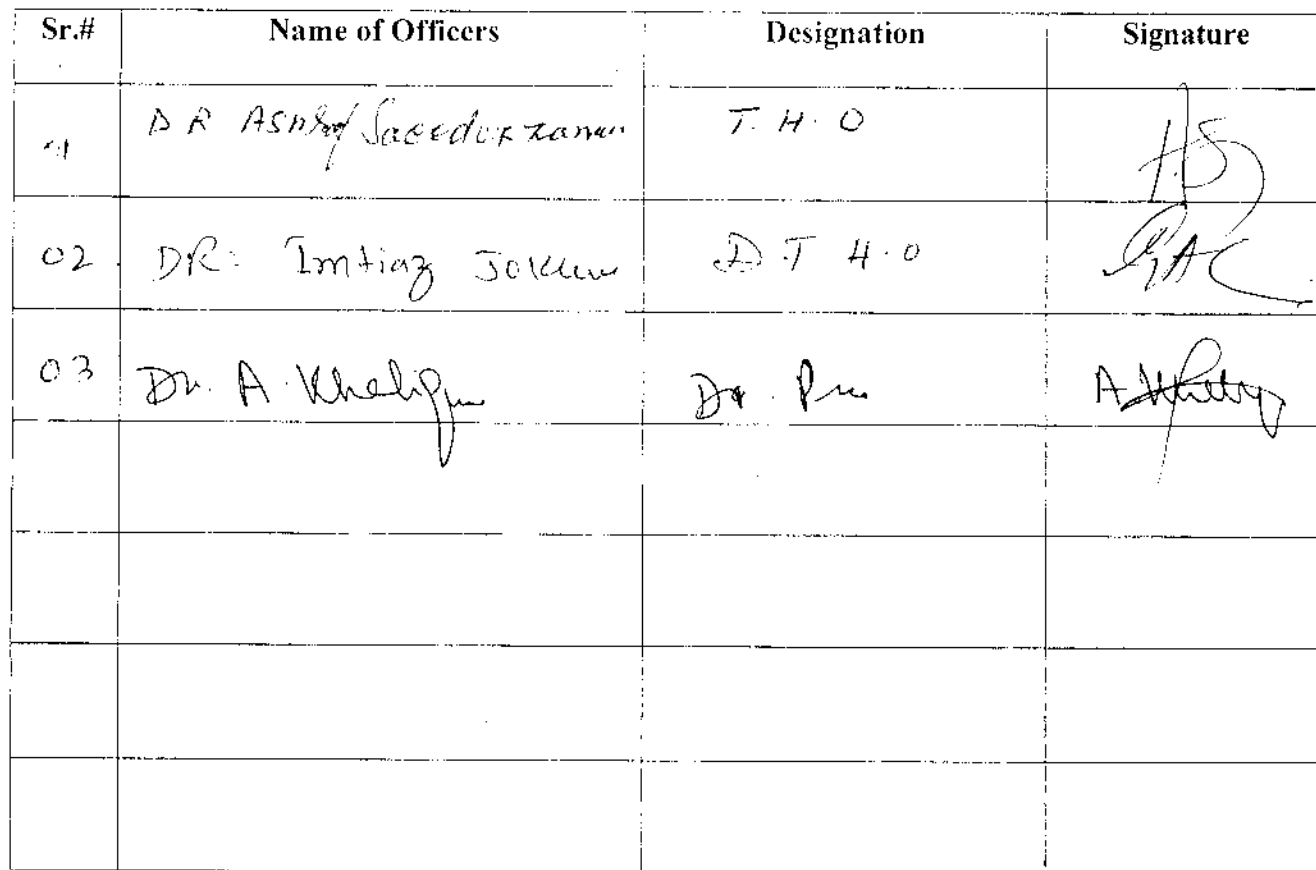 Sr.# Name of Officers Designation Signature
DR Ashraf Saeeduzzaman T.H.O
02 DR: Imtiaz Jokhio D.T H.O
03 Dr. A. Khaliq Dr.